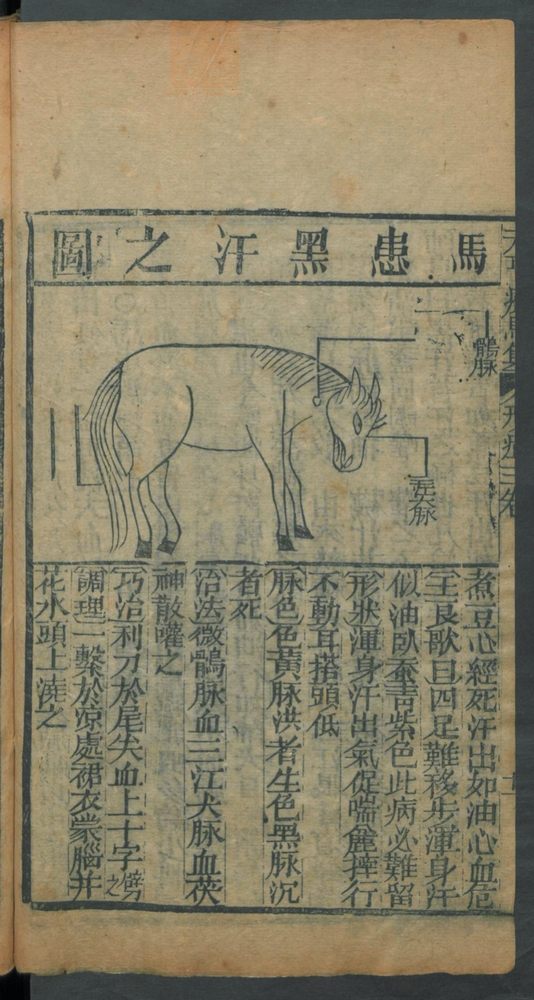 馬患黑汗之圖
鶻脉
三江大脉
煑豆心經死汗出如油心血危
王良歌曰四足難移步渾身汗
似油卧蚕青紫色此病必難留
形狀渾身汗出氣促喘麄擗行
不動耳搭頭低
脉色色黃脉洪者生色黑脉沉
者死
治法徹鶻脉血三江大脉血茯
神散嚾之
巧治利刀於尾尖血上十字劈之
調理一繫於凉處裙衣蒙腦井
花水頭上澆之